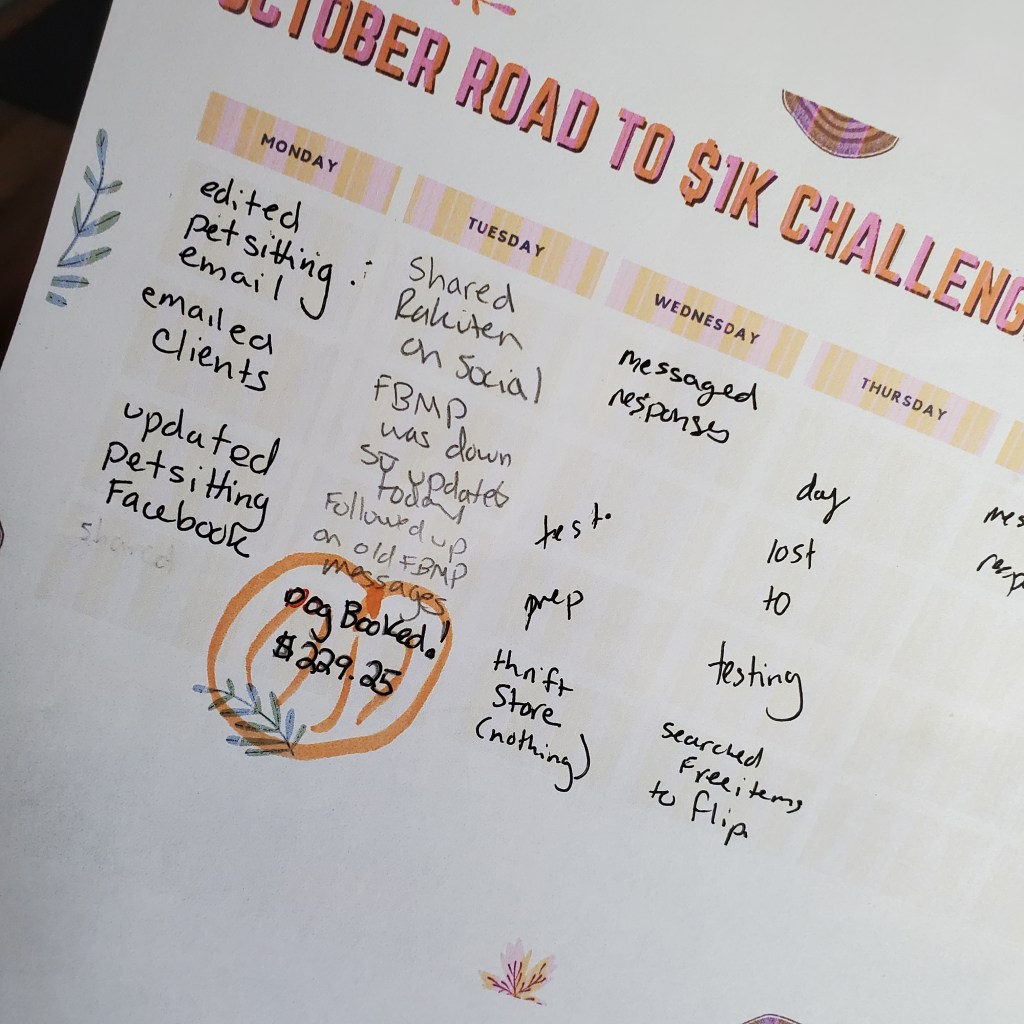 OCTOBER ROAD TO $1K CHALLENG
MONDAY
edited
petsitting
email
emailed
Clients
updated
petsitting
Facebook
shared
TUESDAY
Shared
Rakuten
on Social
FBMP
was down
so updated
today
Followed up
on old FBMP
messages
Dog Booked!
$229.25
WEDNESDAY
messaged
responses
test
prep
thrift
Store
(nothing)
THURSDAY
day
lost
to
testing
searched
Free items
to flip
mes
resp